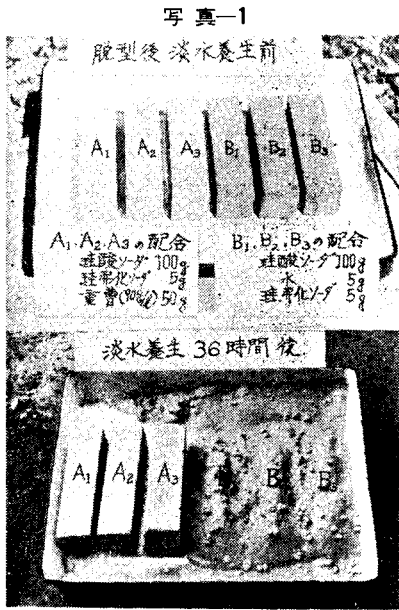 写真—1
脱型後 淡水養生前
A₁ A₂ A₃ B₁ B₂ B₃
A₁.A₂.A₃の配合
珪酸ソーダ 100g
珪弗化ソーダ 5g
重曹(90g/l) 50g
B₁.B₂.B₃の配合
珪酸ソーダ 100g
水 5g
珪弗化ソーダ 5g
淡水養生 36時間後.
A₁ A₂ A₃ B